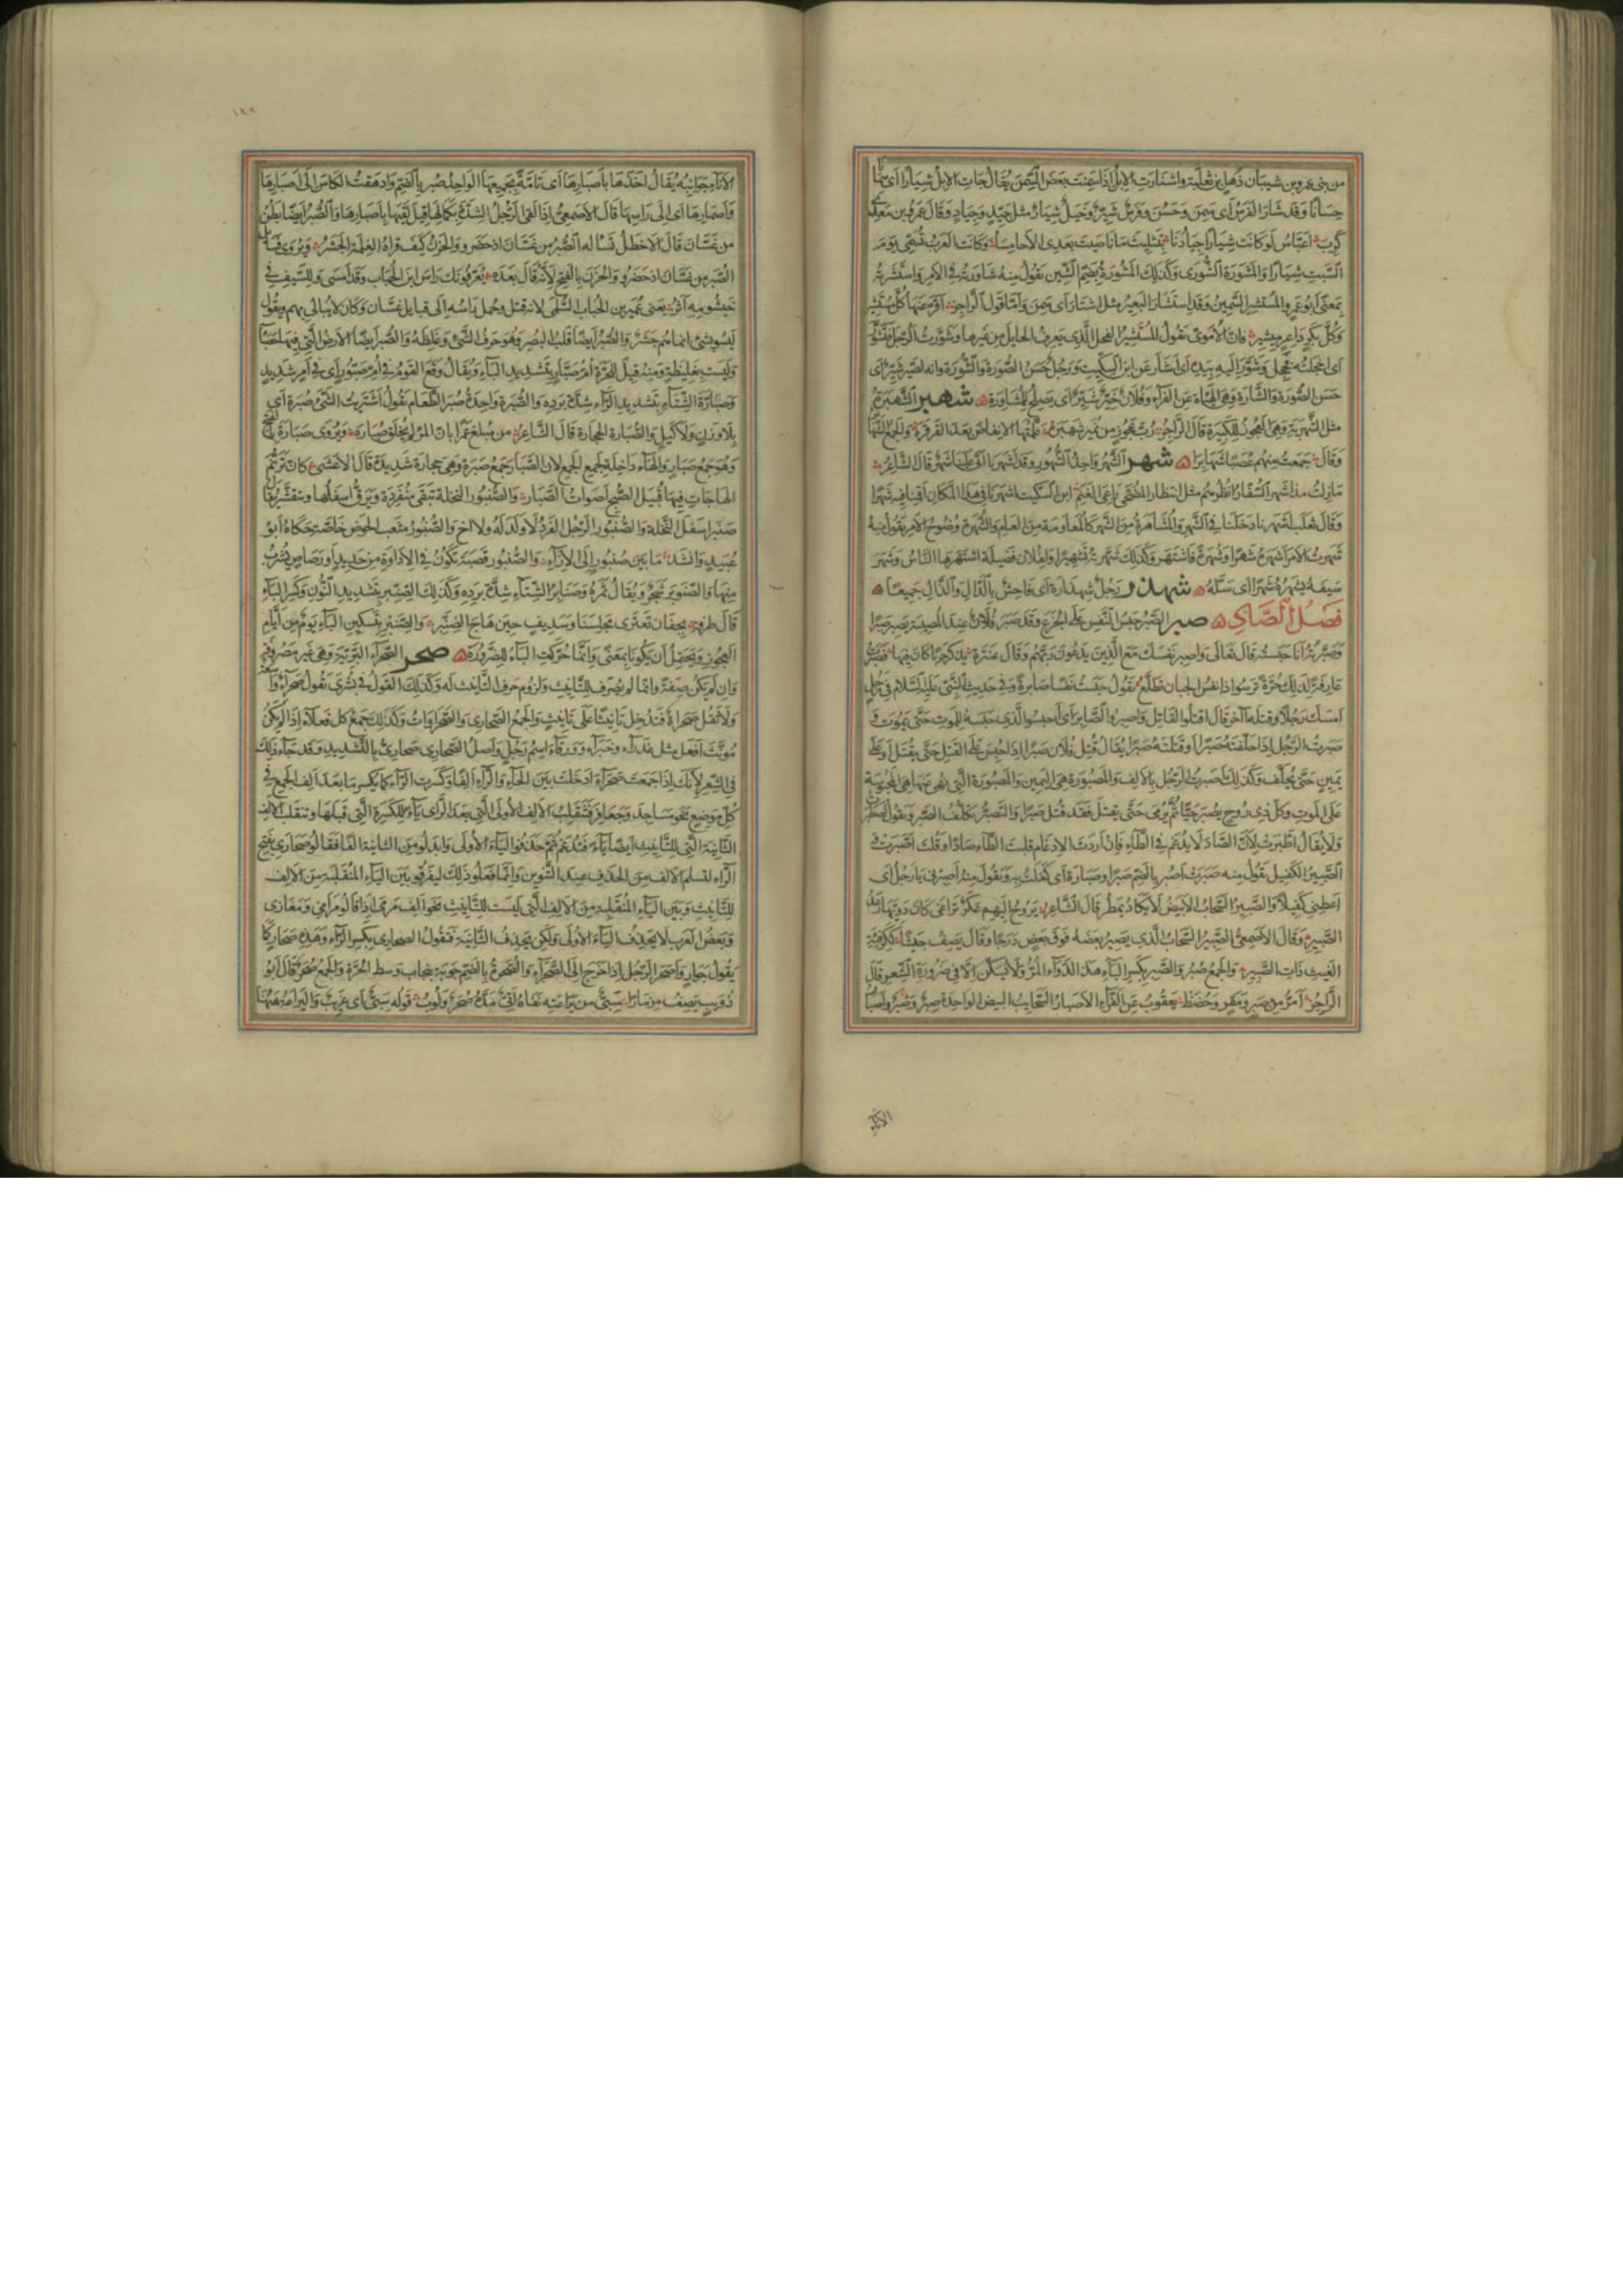 من بنى عمرو بن شيبان بن ذهل بن ثعلبة واشتارت الإبل اذا سمنت بعض السمن يقال جات الابل شيارا اى سمانا
حسانا وقد شار الفرس اى سمن وحسن وفرس شير وخيل شيار مثل جيد وجياد وقال عمرو بن معدى
كرب اعباس لو كانت شيارا جيادنا بتثليث ما ناصيت بعدى الاحامسا وكانت العرب تسمى يوم
السبت شيارا والمشورة الشورى وكذلك المشورة بضم الشين تقول منه شاورته فى الامر واستشرته
بمعنى ابو عمرو المستشير السمين وقد استشار البعير مثل اشتار اى سمن واما قول الراجز افز عنها كل مستشير
وكل بكر داعر ميشير فان الاموى تقول المستشير الفحل الذى يعرف الحايل من غيرها وشورت الرجل فتشور
اى اخجلته فخجل وشور اليه بيده اى اشار عن ابن السكيت ورجل حسن الصورة والشورة وانه لصير شير اى
حسن الصورة والشارة وهى الهياة عن الفراء وفلان خير شير اى يصلح للمشاورة شهبر الشهبرة
مثل الشهربة وهى العجوز الكبيرة قال الراجز رب عجوز من نمير شهبره علمتها الانقاض بعد القرقرة والجمع الشهابر
وقال جمعت منهم عصبا شهابرا شهر الشهر واحد الشهور وقد اشهرنا اى اتى علينا شهر قال الشاعر
مازلت مذ اشهر السفار انظرهم مثل انتظار المضحى راعى الغنم ابن السكيت اشهرنا فى هذا المكان اقنا فيه شهرا
وقال ثعلب اشهرنا دخلنا فى الشهر والمشاهرة من الشهر كالمعاومة من العام والشهرة وضوح الامر تقول منه
شهرت الامر اشهره شهرا وشهرة فاشتهر وكذلك شهرته تشهيرا ولفلان فضيلة اشتهرها الناس وشهر
سيفه يشهره شهرا اى سله شهذر رجل شهدارة اى فاحش بالدال والذال جميعا
فصل الصاد صبر الصبر حبس النفس على الجزع وقد صبر فلان عند المصيبة يصبر صبرا
وصبرته انا حبسته قال تعالى واصبر نفسك مع الذين يدعون ربهم وقال عنترة يذكر حربا كان فيها فصبرت
عارفة لذلك حرة ترسوا اذا نفس الجبان تطلع تقول حبست نفسا صابرة وفى حديث النبى عليه السلام فى رجل
امسك رجلا وقتله آخر قال اقتلوا القاتل واصبروا الصابر اى احبسوا الذى حبسه للموت حتى يموت و
صبرت الرجل اذا حلفته صبرا او قتلته صبرا يقال قتل فلان صبرا اذا حبس على القتل حتى يقتل او على
يمين حتى يحلف وكذلك اصبرت الرجل بالالف والمصبورة هى اليمين والمصبورة التى نهى عنها هى المحبوسة
على الموت وكل ذى روح يصبر حيا ثم يرمى حتى يقتل فقد قتل صبرا والتصبر تكلف الصبر وتقول اصطبر
ولا يقال اطبرت لان الصاد لا يدغم فى الطاء فان اردت الادغام قلبت الطاء صادا وقلت اصبرت و
الصبير الكفيل تقول منه صبرت اصبر بالضم صبرا وصبارة اى كفلت به وتقول منه اصبرنى يا رجل اى
اعطنى كفيلا والصبير السحاب الابيض لا يكاد يمطر قال الشاعر يروح اليهم عكر تراغى كان دويها رعد
الصبير وقال الاصمعى الصبير السحاب الذى يصير بعضه فوق بعض درجا وقال يصف جيشا ككرفئة
الغيث ذات الصبير والجمع صبر والصبر بكسر الباء هذا الدواء المر ولا يسكن الا فى ضرورة الشعر قال
الراجز امر من صبر ومقر وحضظ يعقوب عن الفراء الاصبار السحايب البيض الواحدة صبر وصبر واصبار
الاناء
١٤٢
الاناء جوانبه يقال اخذها باصبارها اى تامة بجميعها الواحد صبر بالضم وادهقت الكاس الى اصبارها
واصمارها اى الى راسها قال الاصمعى اذا لقى الرجل الشدة بكمالها قيل لقيها باصبارها والصبر ايضا بطن
من غسان قال الاخطل تساله الصبر من غسان اذ حضروا والحزن كيف قراه الغلمة الجشر ويروى فسايل
الصبر من غسان اذ حضروا والحزن بالفتح لانه قال بعده يعرفونك راس ابن الحباب وقد امسى وللسيف فى
خيشومه اثر يعنى عمير بن الحباب السلمى لانه قتل وحمل راسه الى قبايل غسان وكان لا يبالى بهم ويقول
ليسوا بشئ انما هم جشر والصبر ايضا قلب البصر وهو حرف الشئ وغلظه والصبر ايضا الارض التى فيها حصباء
وليست بغليظة ومنه قيل للحرة ام صبار بتشديد الباء ويقال وقع القوم فى ام صبور اى فى امر شديد
وصبارة الشتاء بتشديد الراء شدة برده والصبرة واحدة صبر الطعام تقول اشتريت الشئ صبرة اى
بلا وزن ولا كيل والصبارة الحجارة قال الشاعر من مبلغ عمرا بان المرء لم يخلق صباره ويروى صبارة بالفتح
وهو جمع صبار والهاء داخلة لجمع الجمع لان الصبار جمع صبرة وهى حجارة شديدة قال الاعشى كان ترنم
الهاجات فيها قبيل الصبح اصوات الصبار والصنبور النخلة تبقى منفردة ويرق اسفلها وتتقشر يقال
صنبر اسفل النخلة والصنبور الرجل الفرد لا ولد له ولا اخ والصنبور مثعب الحوض خاصة حكاه ابو
عبيد وانشد ما بين صنبور الى الازاء والصنبور قصبة تكون فى الاداوة من حديد او رصاص يشرب
منها والصنوبر شجر ويقال ثمره وصنابر الشتاء شدة برده وكذلك الصنبر بتشديد النون وكسر الباء
قال طرفة بجفان تعترى مجلسنا وسديف حين هاج الصنبر والصنبر بتسكين الباء يوم من ايام
العجوز ويحتمل ان يكونا بمعنى وانما حركت الباء للضرورة صحر الصحراء البرية وهى غير مصروفة
وان لم يكن صفة وانما لم يصرف للتانيث ولزوم حرف التانيث له وكذلك القول فى بشرى تقول صحراء واسعة
ولا تقل صحراة فتدخل تانيثا على تانيث والجمع الصحارى والصحراوات وكذلك جمع كل فعلاء اذا لم يكن
مؤنث افعل مثل عذراء وخبراء وورقاء اسم رجل واصل الصحارى صحارى بالتشديد وقد جاء ذلك
فى الشعر لانك اذا جمعت صحراء ادخلت بين الحاء والراء الفا وكسرت الراء كما يكسر ما بعد الف الجمع فى
كل موضع نحو مساجد وجعافر فتنقلب الالف الاولى التى بعد الراء ياء للكسرة التى قبلها وتنقلب الالف
الثانية التى للتانيث ايضا ياء فتدغم ثم حذفوا الياء الاولى وابدلوا من الثانية الفا فقالوا صحارى بفتح
الراء لتسلم الالف من الحذف عند التنوين وانما فعلوا ذلك ليفرقوا بين الياء المنقلبة من الالف
للتانيث وبين الياء المنقلبة من الالف التى ليست للتانيث نحو الف مرمى اذا قالوا مرامى ومغازى
وبعض العرب لا يحذف الياء الاولى ولكن يحذف الثانية فتقول الصحارى بكسر الراء وهذه صحار كما
يقول جوار واصحر الرجل اذا خرج الى الصحراء والصحرة بالضم جوبة تنجاب وسط الحرة والجمع صحر قال ابو
ذويب يصف مزمارا سبى من يراعته نفاه اتى مده صحر ولوب قوله سبى اى غريب واليراعة ههنا